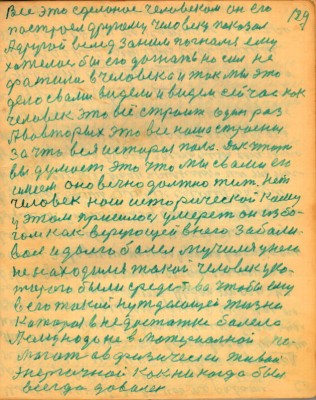 129
Все это сделоное человеком он его
построел другому человеку показал
А другой вслед за ним погнался ему
хотелос бы его догнать но сил не
хватили в человеке и так мы это
дело свами видели и видем сейчас как
человек это всё строит один раз
А вовторых это все наше строение
За что вся история пала. Как то
вы думаете это что мы свами его
имеем оно вечно должно жит. Нет
человек наш исторический кому
и этом пришлос умерет он из бо
гом как верующей в него Заболи
вал и долго болел мучился у нас
не находился такой человек у ко
торого были средства чтобы ему
в его такой нуждающей жизни
Которая в недостатке болело
Нему надо не в материальной по
могат а в физически живой
энергичной как никогда был
всегда доволен